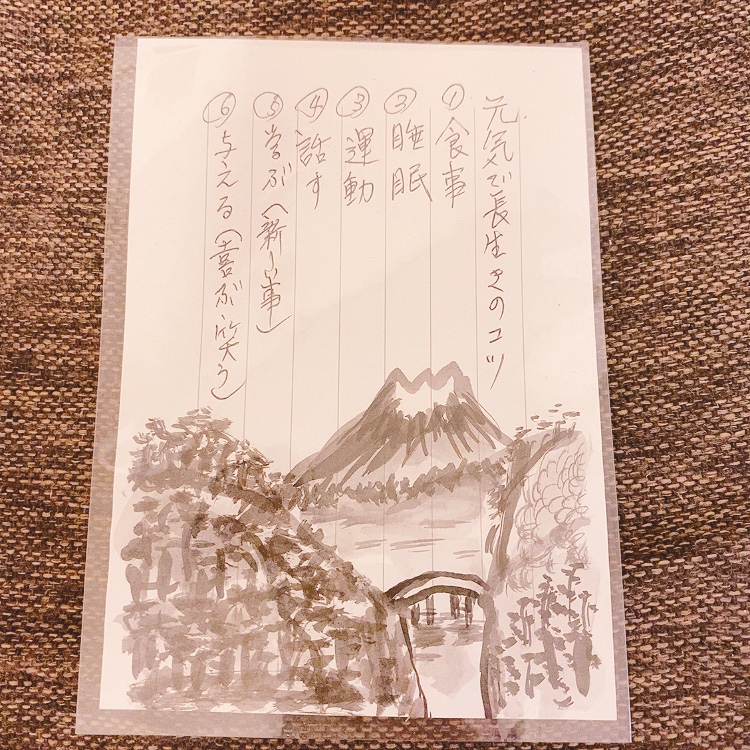 元気で長生きのコツ
①食事
②睡眠
③運動
④話す
⑤学ぶ(新しい事)
⑥与える(喜ぶ・笑う)